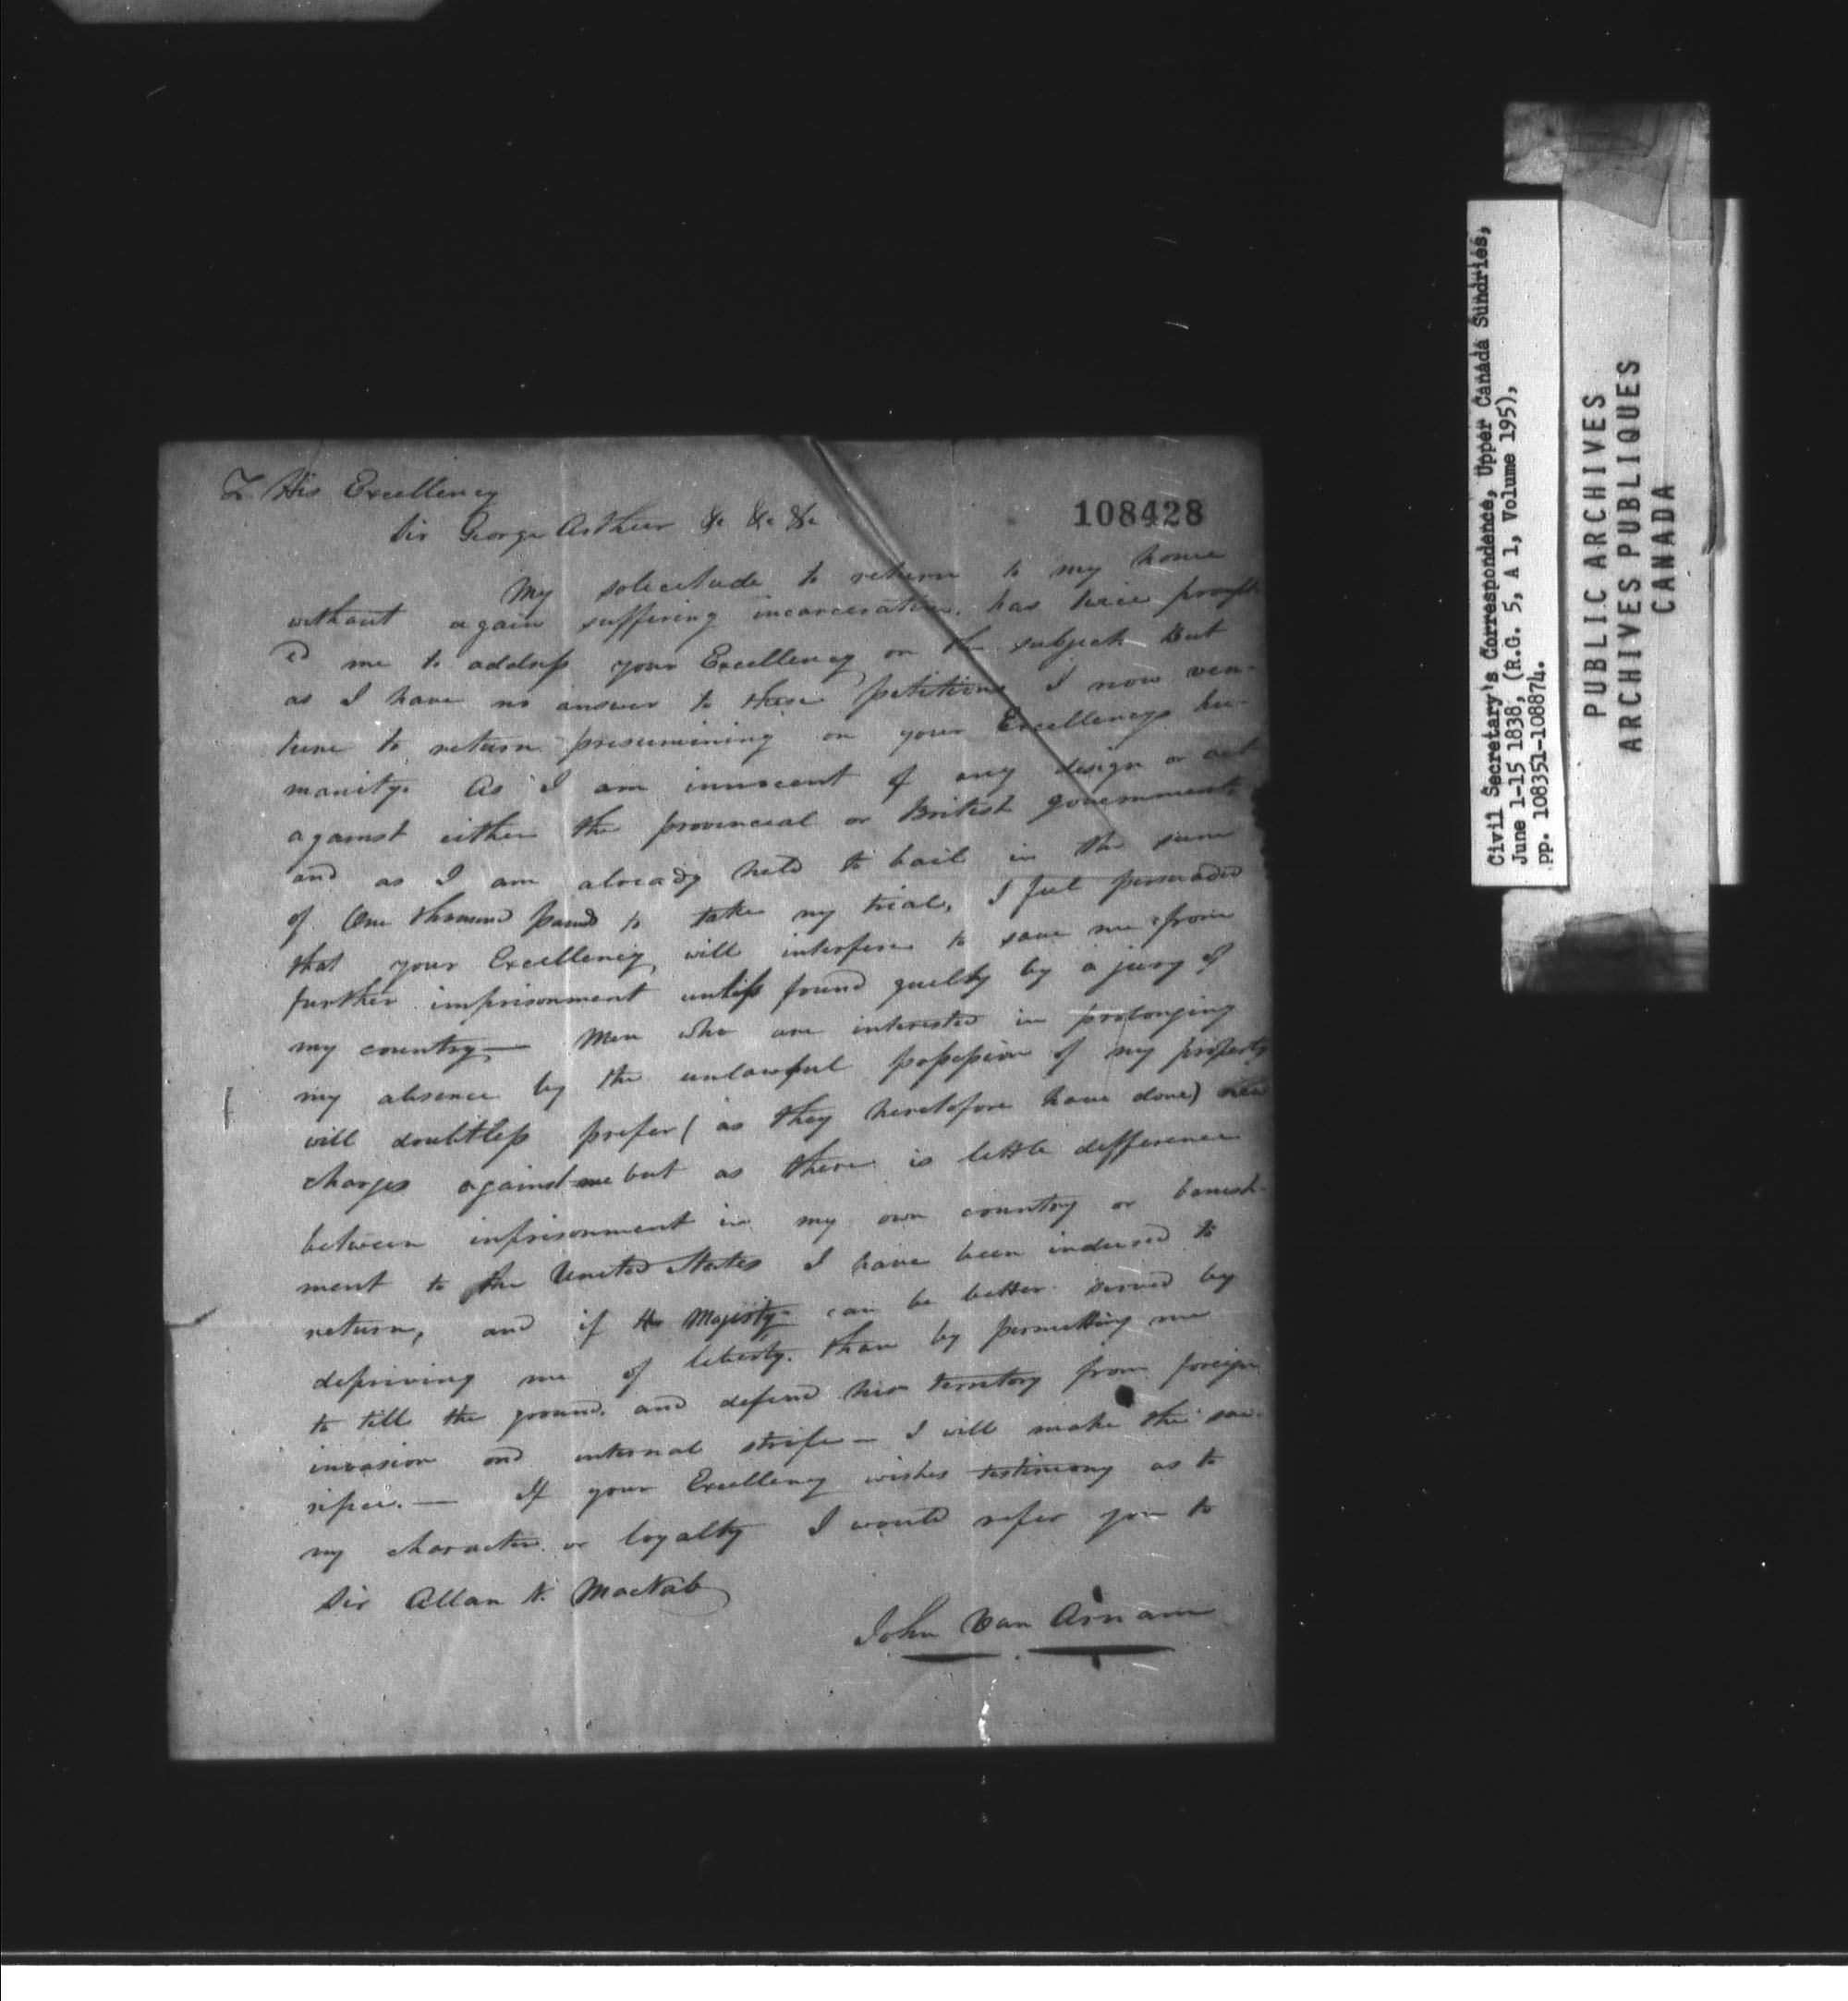 To His Excellency
Sir George Arthur &c &c &c
108428
My solicitude to return to my home
without again suffering incarceration, has twice prompt-
ed me to address your Excellency on the subject But
as I have no answer to these petitions I now ven-
ture to return presumining on your Excellencys hu-
manity. As I am innocent of any design or act
against either the provincial or British governments
and as I am already held to bail in the sum
of One thousand pound to take my trial, I feel persuaded
that your Excellency will interfere to save me from
further imprisonment unless found guilty by a jury of
my country — Men who are interested in prolonging
my absence by the unlawful possession of my property
will doubtless prefer (as they heretofore have done) new
charges against me but as there is little difference
between imprisonment in my own country or banish-
ment to the United States I have been induced to
return, and if Her Majesty can be better served by
depriving me of liberty. than by permitting me
to till the ground. and defend her territory from foreign
invasion and internal strife — I will make the sac-
rifice. — If your Excellency wishes testimony as to
my character or loyalty I would refer you to
Sir Allan N. MacNab
John Van Arnam
Civil Secretary's Correspondence, Upper Canada Sundries,
June 1-15 1838, (R.G. 5, A 1, Volume 195),
pp. 108351-108874.
PUBLIC ARCHIVES
ARCHIVES PUBLIQUES
CANADA